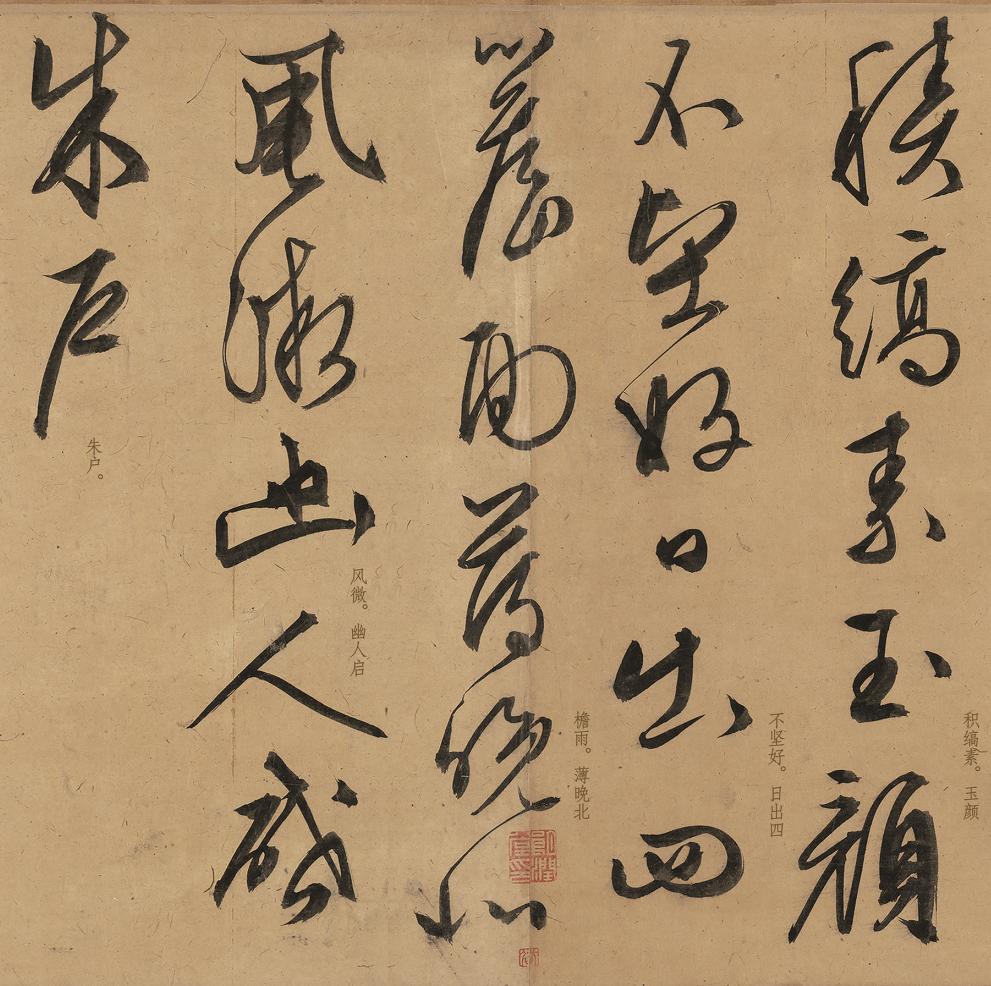 積縞素玉顏
积缟素。玉颜
不堅好日出四
不坚好。日出四
簷雨薄晚北
檐雨。薄晚北
風微幽人啟
风微。幽人启
朱戶
朱户。